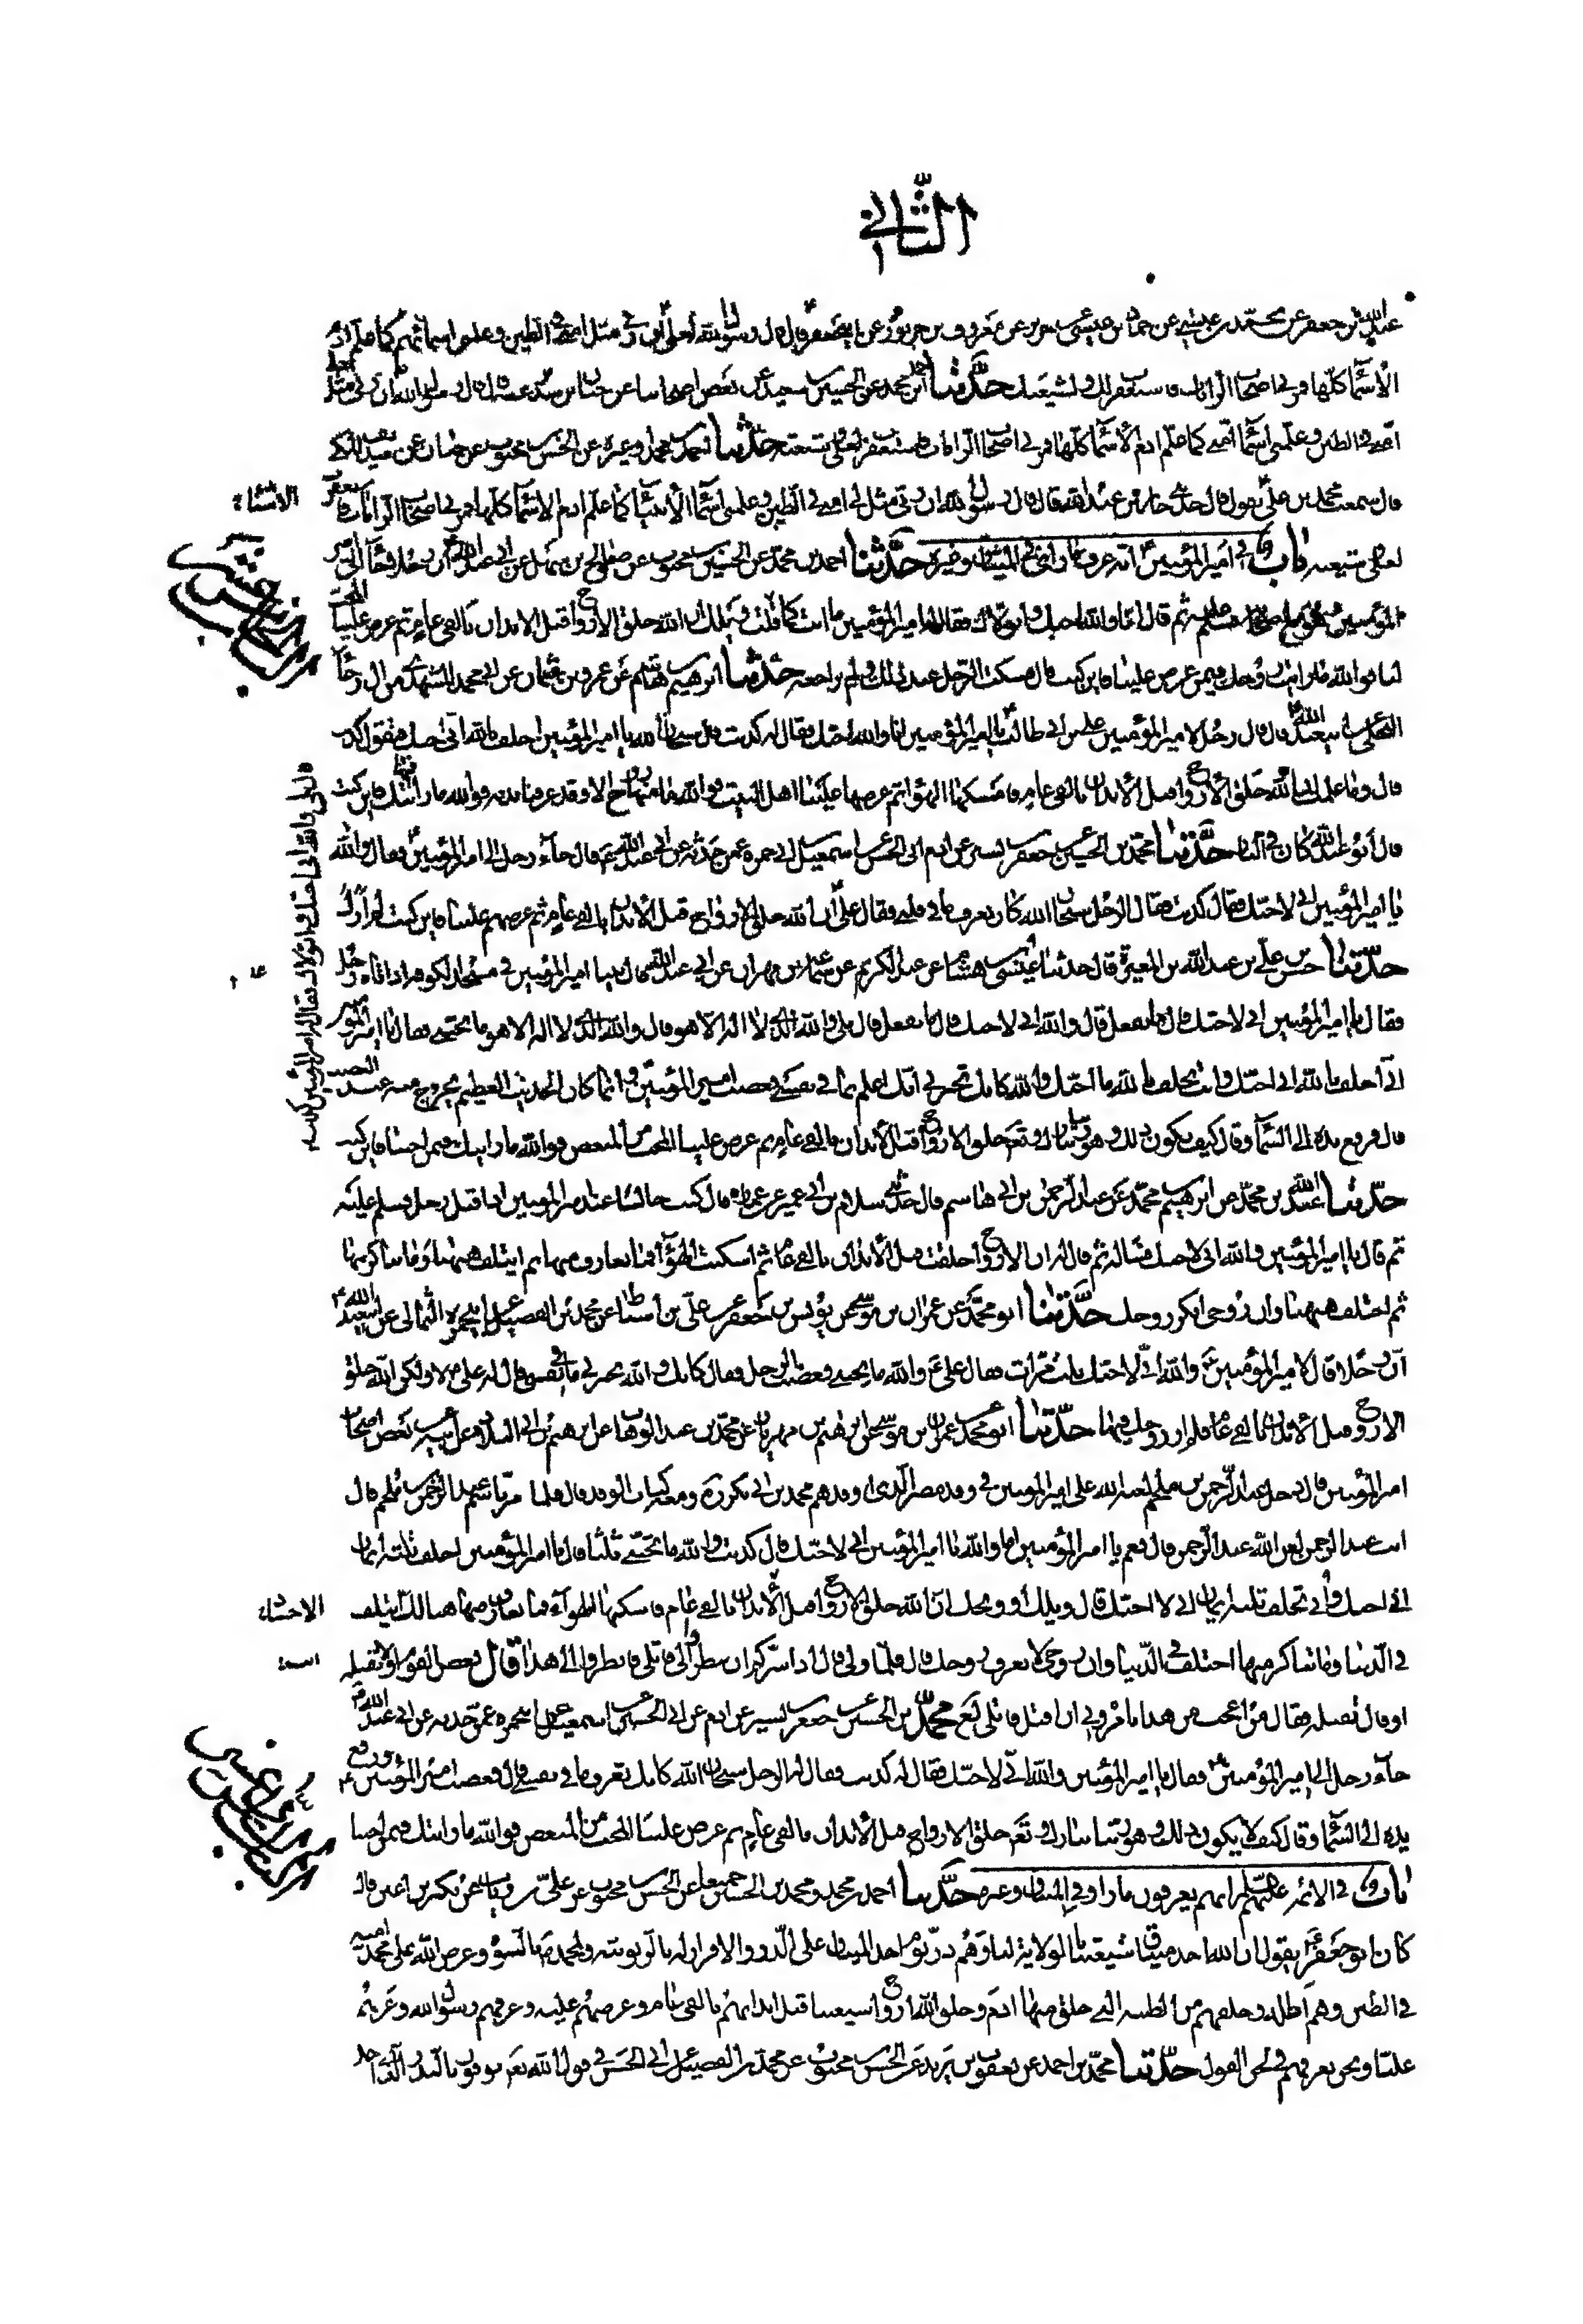 الثاني
عبد الله بن جعفر عن محمد بن عيسى عن حماد بن عيسى عن حريز عن معروف بن خربوذ عن ابي جعفر قال قال رسول الله لعلي ان ربي مثل امتي في الطين وعلمني اسمائهم كما علم ادم
الاسماء كلها فمر بي اصحاب الرايات فاستغفرت لك ولشيعتك حدثنا احمد بن محمد عن الحسين بن سعيد عن بعض اصحابنا عن حنان بن سدير
امتي في الطين وعلمني اسماء امتي كما علم ادم الاسماء كلها فمر بي اصحاب الرايات فاستغفرت لعلي وشيعته حدثنا احمد بن محمد وغيره عن الحسن بن محبوب عن حنان عن
قال سمعت محمد بن علي يقول قال حدثني جابر بن عبد الله قال قال رسول الله ان ربي مثل لي امتي في الطين وعلمني اسماء الانبياء كما علم ادم الاسماء كلها فمر بي اصحاب الرايات
لعلي وشيعته باب في امير المؤمنين انه عرف ما راى في الميثاق وغيره حدثنا احمد بن محمد عن الحسن بن محبوب عن صالح بن سهل عن ابي عبد الله ان رجلا جاء الى امير
المؤمنين وهو مع اصحابه فسلم عليه ثم قال انا والله احبك واتولاك فقال له امير المؤمنين ما انت كما قلت ويلك ان الله خلق الارواح قبل الابدان بالفي عام ثم عرض علينا المحب
لنا فوالله ما رايت روحك فيمن عرض علينا فاين كنت قال فسكت الرجل عند ذلك ولم يراجعه حدثنا ابرهيم بن هاشم عن عمرو بن عثمان عن ابي محمد المشهدي من ال رجا
البجلي عن ابي عبد الله قال قال رجل لامير المؤمنين علي بن ابي طالب يا امير المؤمنين انا والله احبك فقال له كذبت قال سبحان الله يا امير المؤمنين احلف بالله اني احبك فتقول كذبت
قال وما علمت ان الله خلق الارواح قبل الابدان بالفي عام فاسكنها الهواء ثم عرضها علينا اهل البيت فوالله ما منها روح الا وقد عرفنا بدنه فوالله ما رايتك فيها فاين كنت
قال ابو عبد الله كان في النار حدثنا محمد بن الحسين عن جعفر بن بشير عن ادم ابي الحسين عن اسمعيل بن ابي حمزة عمن حدثه عن ابي عبد الله قال جاء رجل الى امير المؤمنين فقال والله
يا امير المؤمنين اني لاحبك فقال كذبت فقال الرجل سبحان الله كانك تعرف ما في قلبي فقال علي ان الله خلق الارواح قبل الابدان بالفي عام ثم عرضهم علينا فاين كنت لم ارك
حدثنا حسن بن علي بن عبد الله بن المغيرة قال حدثنا عيسى بن هشام عن عبد الكريم عن سماعة بن مهران عن ابي عبد الله قال بينا امير المؤمنين في مسجد الكوفة اذ اتاه رجل
فقال يا امير المؤمنين اني لاحبك قال ما تفعل قال والله اني لاحبك قال ما تفعل قال بلى والله الذي لا اله الا هو قال والله الذي لا اله الا هو ما تحبني فقال يا امير المؤمنين
اني احلف بالله اني احبك وانت تحلف بالله ما احبك والله كانك تخبرني انك اعلم بما في نفسي فغضب امير المؤمنين وانما كان الحديث العظيم يخرج منه عند الغضب
قال فرفع يده الى السماء وقال كيف يكون ذلك وهو ربنا تبارك وتعالى خلق الارواح قبل الابدان بالفي عام ثم عرض علينا المحب من المبغض فوالله ما رايتك فيمن احبنا فاين كنت
حدثنا عبد الله بن محمد عن ابرهيم بن محمد عن عبد الرحمن بن ابي هاشم قال حدثني سلام بن ابي عمير عن عمارة قال كنت جالسا عند امير المؤمنين اذ اقبل رجل فسلم عليه
ثم قال يا امير المؤمنين والله اني لاحبك فساله ثم قال له ان الارواح خلقت قبل الابدان بالفي عام ثم اسكنت الهواء فما تعارف منها ثم ايتلف ههنا وما تناكر منها
ثم اختلف ههنا وان روحي انكر روحك حدثنا ابو محمد عن عمران بن موسى عن يونس بن جعفر عن علي بن اسباط عن محمد بن الفضيل عن ابي حمزة الثمالي عن ابي عبد الله
ان رجلا قال لامير المؤمنين والله اني لاحبك ثلث مرات فقال علي والله ما تحبني فغضب الرجل فقال كانك والله تخبرني ما في نفسي قال له علي لا ولكن الله خلق
الارواح قبل الابدان بالفي عام فلم ار روحك فيها حدثنا ابو محمد عن عمران بن موسى عن ابرهيم بن مهزيار عن محمد بن عبد الوهاب عن ابرهيم بن ابي البلاد عن ابيه عن بعض اصحاب
امير المؤمنين قال دخل عبد الرحمن بن ملجم لعنه الله على امير المؤمنين في وفد مصر الذي اوفدهم محمد بن ابي بكر ره ومعه كتاب الوفد قال فلما مر باسم عبد الرحمن بن ملجم قال
انت عبد الرحمن لعن الله عبد الرحمن قال نعم يا امير المؤمنين اما والله يا امير المؤمنين اني لاحبك قال كذبت والله ما تحبني ثلثا قال يا امير المؤمنين احلف ثلثة ايمان
اني احبك وانت تحلف ثلثة ايمان اني لا احبك قال ويلك او ويحك ان الله خلق الارواح قبل الابدان بالفي عام فاسكنها الهواء فما تعارف منها هنالك ايتلف
في الدنيا وما تناكر منها اختلف في الدنيا وان روحي لا تعرف روحك قال فلما ولى قال اذا سركم ان تنظروا الى قاتلي فانظروا الى هذا قال بعض القوم اولا تقتله
او قال نقتله فقال من اعجب من هذا تامروني ان اقتل قاتلي لع محمد بن الحسين عن جعفر بن بشير عن ادم عن ابي الحسين عن اسمعيل بن ابي حمزة عمن حدثه عن ابي عبد الله
جاء رجل الى امير المؤمنين فقال يا امير المؤمنين والله اني لاحبك فقال له كذبت فقال له الرجل سبحان الله كانك تعرف ما في نفسي قال فغضب امير المؤمنين ورفع
يده الى السماء وقال كيف لا يكون ذلك وهو ربنا تبارك وتعالى خلق الارواح قبل الابدان بالفي عام ثم عرض علينا المحب من المبغض فوالله ما رايتك فيمن احبنا
باب في الائمة عليهم السلام انهم يعرفون ما راوا في الميثاق وغيره حدثنا احمد بن محمد ومحمد بن الحسين جميعا عن الحسن بن محبوب عن علي بن رئاب عن بكير بن اعين قال
كان ابو جعفر يقول ان الله اخذ ميثاق شيعتنا بالولاية لنا وهم ذر يوم اخذ الميثاق على الذر والاقرار له بالربوبية ولمحمد بالنبوة وعرض الله على محمد امته
في الطين وهم اظلة وخلقهم من الطينة التي خلق منها ادم وخلق الله ارواح شيعتنا قبل ابدانهم بالفي عام وعرضهم عليه وعرفهم رسول الله وعرفهم
عليا ونحن نعرفهم في لحن القول حدثنا محمد بن احمد عن يعقوب بن يزيد عن الحسن بن محبوب عن محمد بن الفضيل عن ابي الحسن في قول الله تعالى يوفون بالنذر الذي اخذ